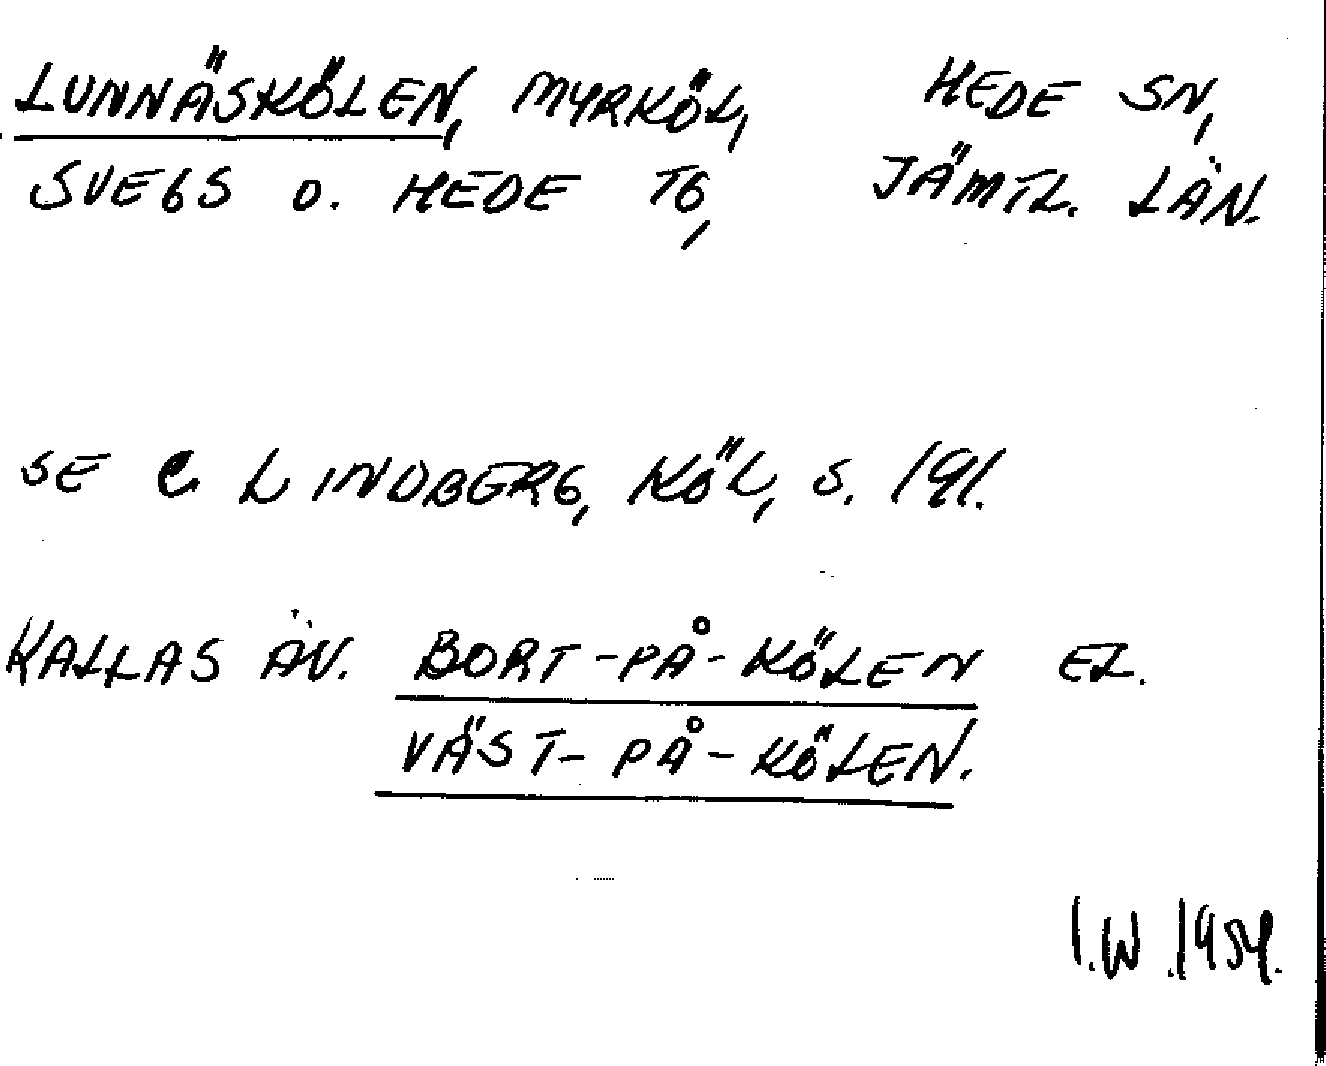 LUNNÄSKÖLEN, MYRKÖL, HEDE SN,
SVEGS O. HEDE TG, JÄMTL. LÄN.
SE C. LINDBERG, KÖL, S. 191.
KALLAS ÄV. BORT-PÅ-KÖLEN EL.
VÄST-PÅ-KÖLEN.
I.W. 1954.